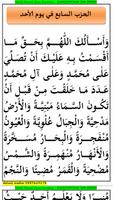 الحزب السابع في يوم الأحد
وَأَسْأَلُكَ اللَّهُمَّ بِحَقِّ مَا
أَقْسَمْتُ بِهِ عَلَيْكَ أَنْ تُصَلِّيَ
عَلَى مُحَمَّدٍ وَعَلَى آلِ مُحَمَّدٍ
عَدَدَ مَا خَلَقْتَ مِنْ قَبْلِ أَنْ
تَكُونَ السَّمَاءُ مَبْنِيَّةً وَالْأَرْضُ
مَدْحِيَّةً وَالْجِبَالُ مُرْسِيَةً وَالْعُيُونُ
مُنْفَجِرَةً وَالْبِحَارُ مُسَخَّرَةً
وَالْأَنْهَارُ مُنْهَمِرَةً وَالشَّمْسُ
مُضْحِيَةً وَالْقَمَرُ مُضِيئًا وَالنَّجْمُ